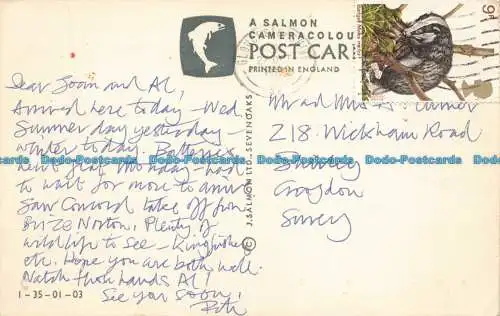 A SALMON
CAMERACOLOUR
POST CARD
PRINTED IN ENGLAND
J. SALMON LTD., SEVENOAKS ©
Dear Joan and Al,
Arrived here today - Wed.
Summer day yesterday -
winter today. Batteries
went flat Monday - had
to wait for more to arrive
Saw Concord take off from
Brize Norton. Plenty of
wildlife to see - Kingfisher
etc. Hope you are both well.
Watch them hands Al!
See you soon,
1-35-01-03
Mr and Mrs
218 Wickham Road
Shirley
Croydon
Surrey
Dodo-Postcards Dodo-Postcards Dodo-Postcards Dodo-Postcards Dodo-Postcards